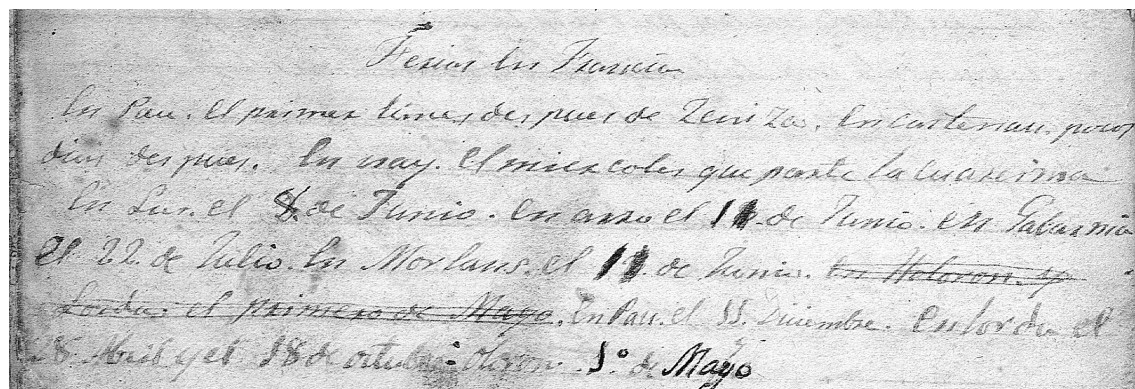 Ferias En Francia
En Pau. el primer lunes des pues de Zeniza. En castenau. pocos
dias des pues. En nay. el miercoles que parte la cuaresma
En Lus. el 8. de Junio. En arro el 11. de Junio. en Gabarnia
El 22 de Julio. En Morlans. el 11. de Junio. En Holoron. y
Lorda. el primero de Mayo. En Pau. el 11. Diciembre. En lorda el
28. Abril y el 18 de octubre. oloron. 1º de Mayo